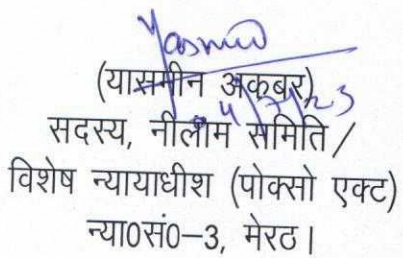 Yasmin
(यासमीन अकबर)
4/7/23
सदस्य, नीलाम समिति /
विशेष न्यायाधीश (पोक्सो एक्ट)
न्या0सं0-3, मेरठ।